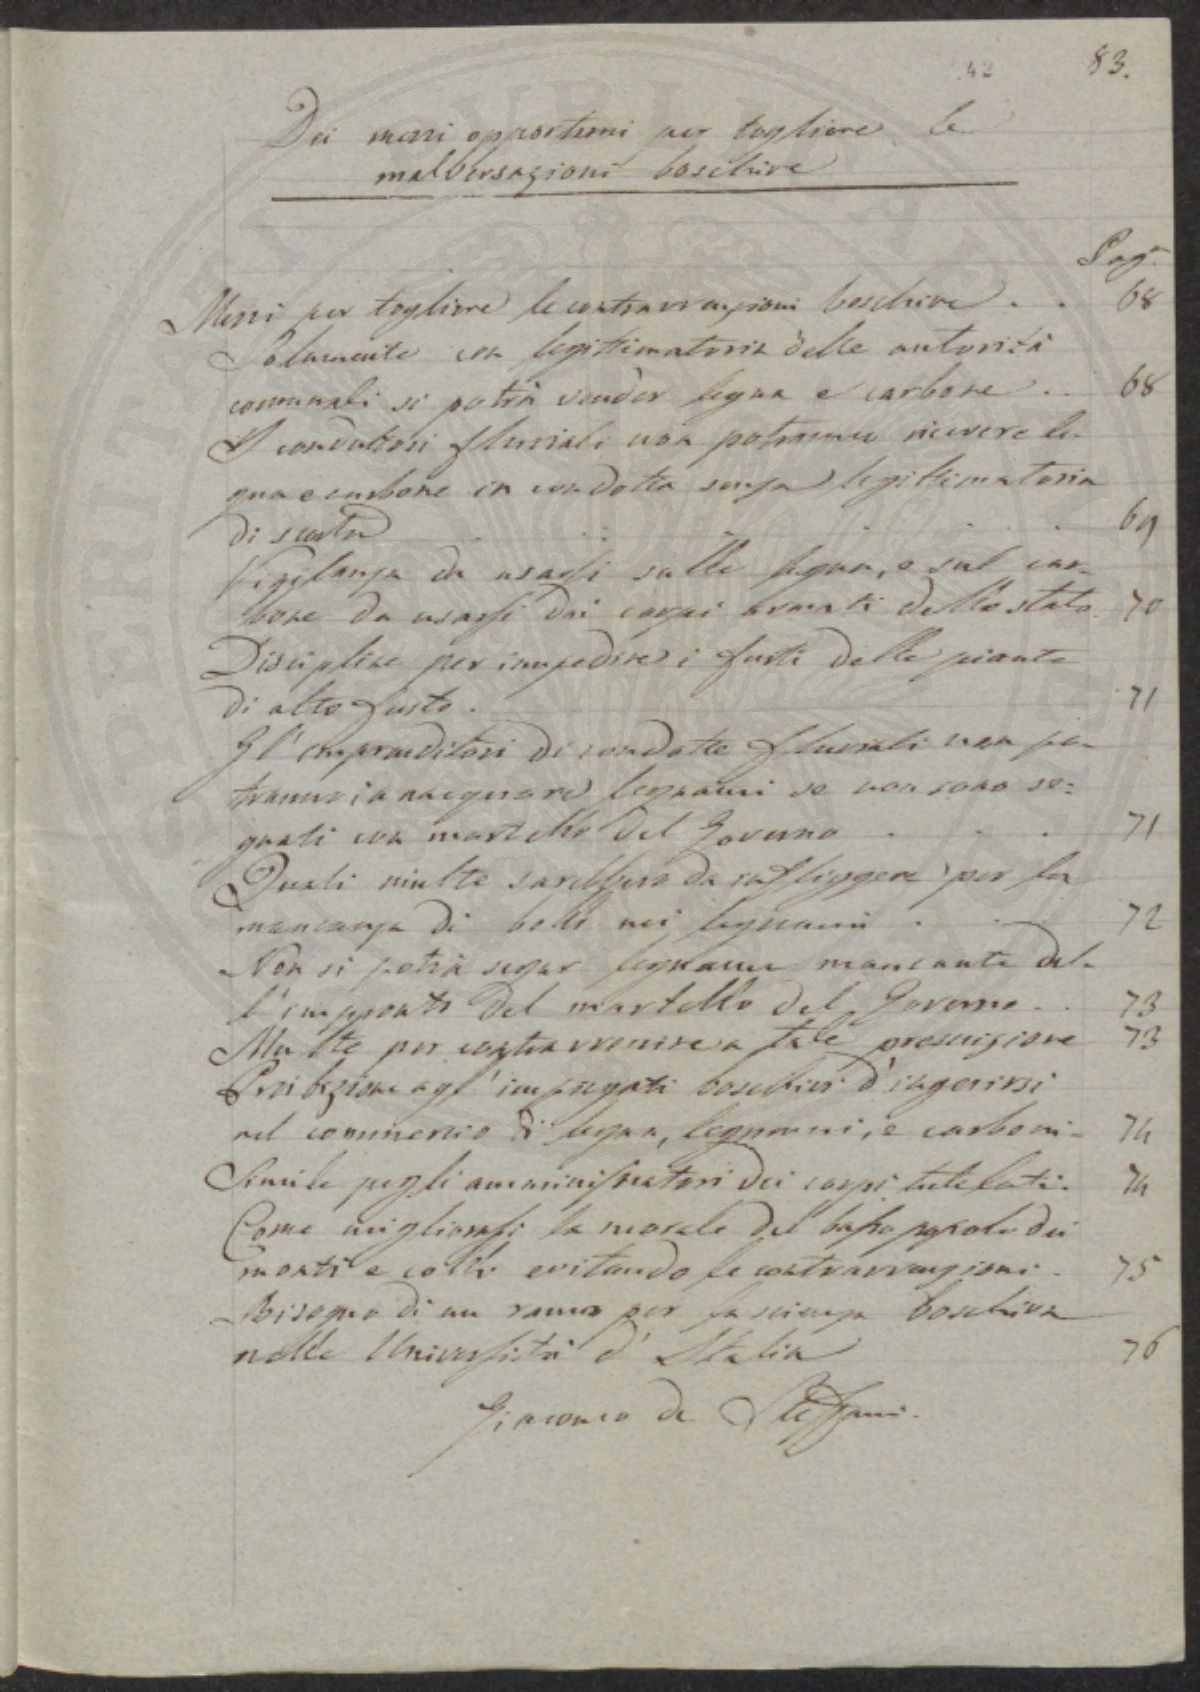 42
83.
Dei mezzi opportuni per togliere le
malversazioni boschive
Pag.
Mezzi per togliere le contravvenzioni boschive . . 68
Solamente con legittimatoria delle autorità
comunali si potrà vender legna e carbone . . 68
I conduttori fluviali non potranno ricevere le-
gna e carbone in condotta senza legittimatoria
di scorta . . . . . 69
Vigilanza da usarsi sulle legna, e sul car-
bone da usarsi dai corpi armati dello stato. 70
Discipline per impedire i furti delle piante
di alto fusto. 71
Gl'imprenditori di condotte fluviali non po-
tranno legnami se non sono se-
gnati con martello del Governo . . . 71
Quali multe sarebbero da infliggere per la
mancanza di bolli nei legnami . . 72
Non si potrà segar legname mancante del-
l'impronto del martello del Governo . . 73
Multe per contravvenire a tale prescrizione 73
Proibizione agl'impiegati boschivi d'ingerirsi
nel commercio di legna, legnami, e carboni- 74
Simile pegli amministratori dei corpi tutelati. 74
Come migliorarsi la morale del basso popolo dei
monti e colli evitando le contravvenzioni. 75
Bisogno di un ramo per la scienza boschiva
nelle Università d'Italia 76
Giacomo de Steffani.